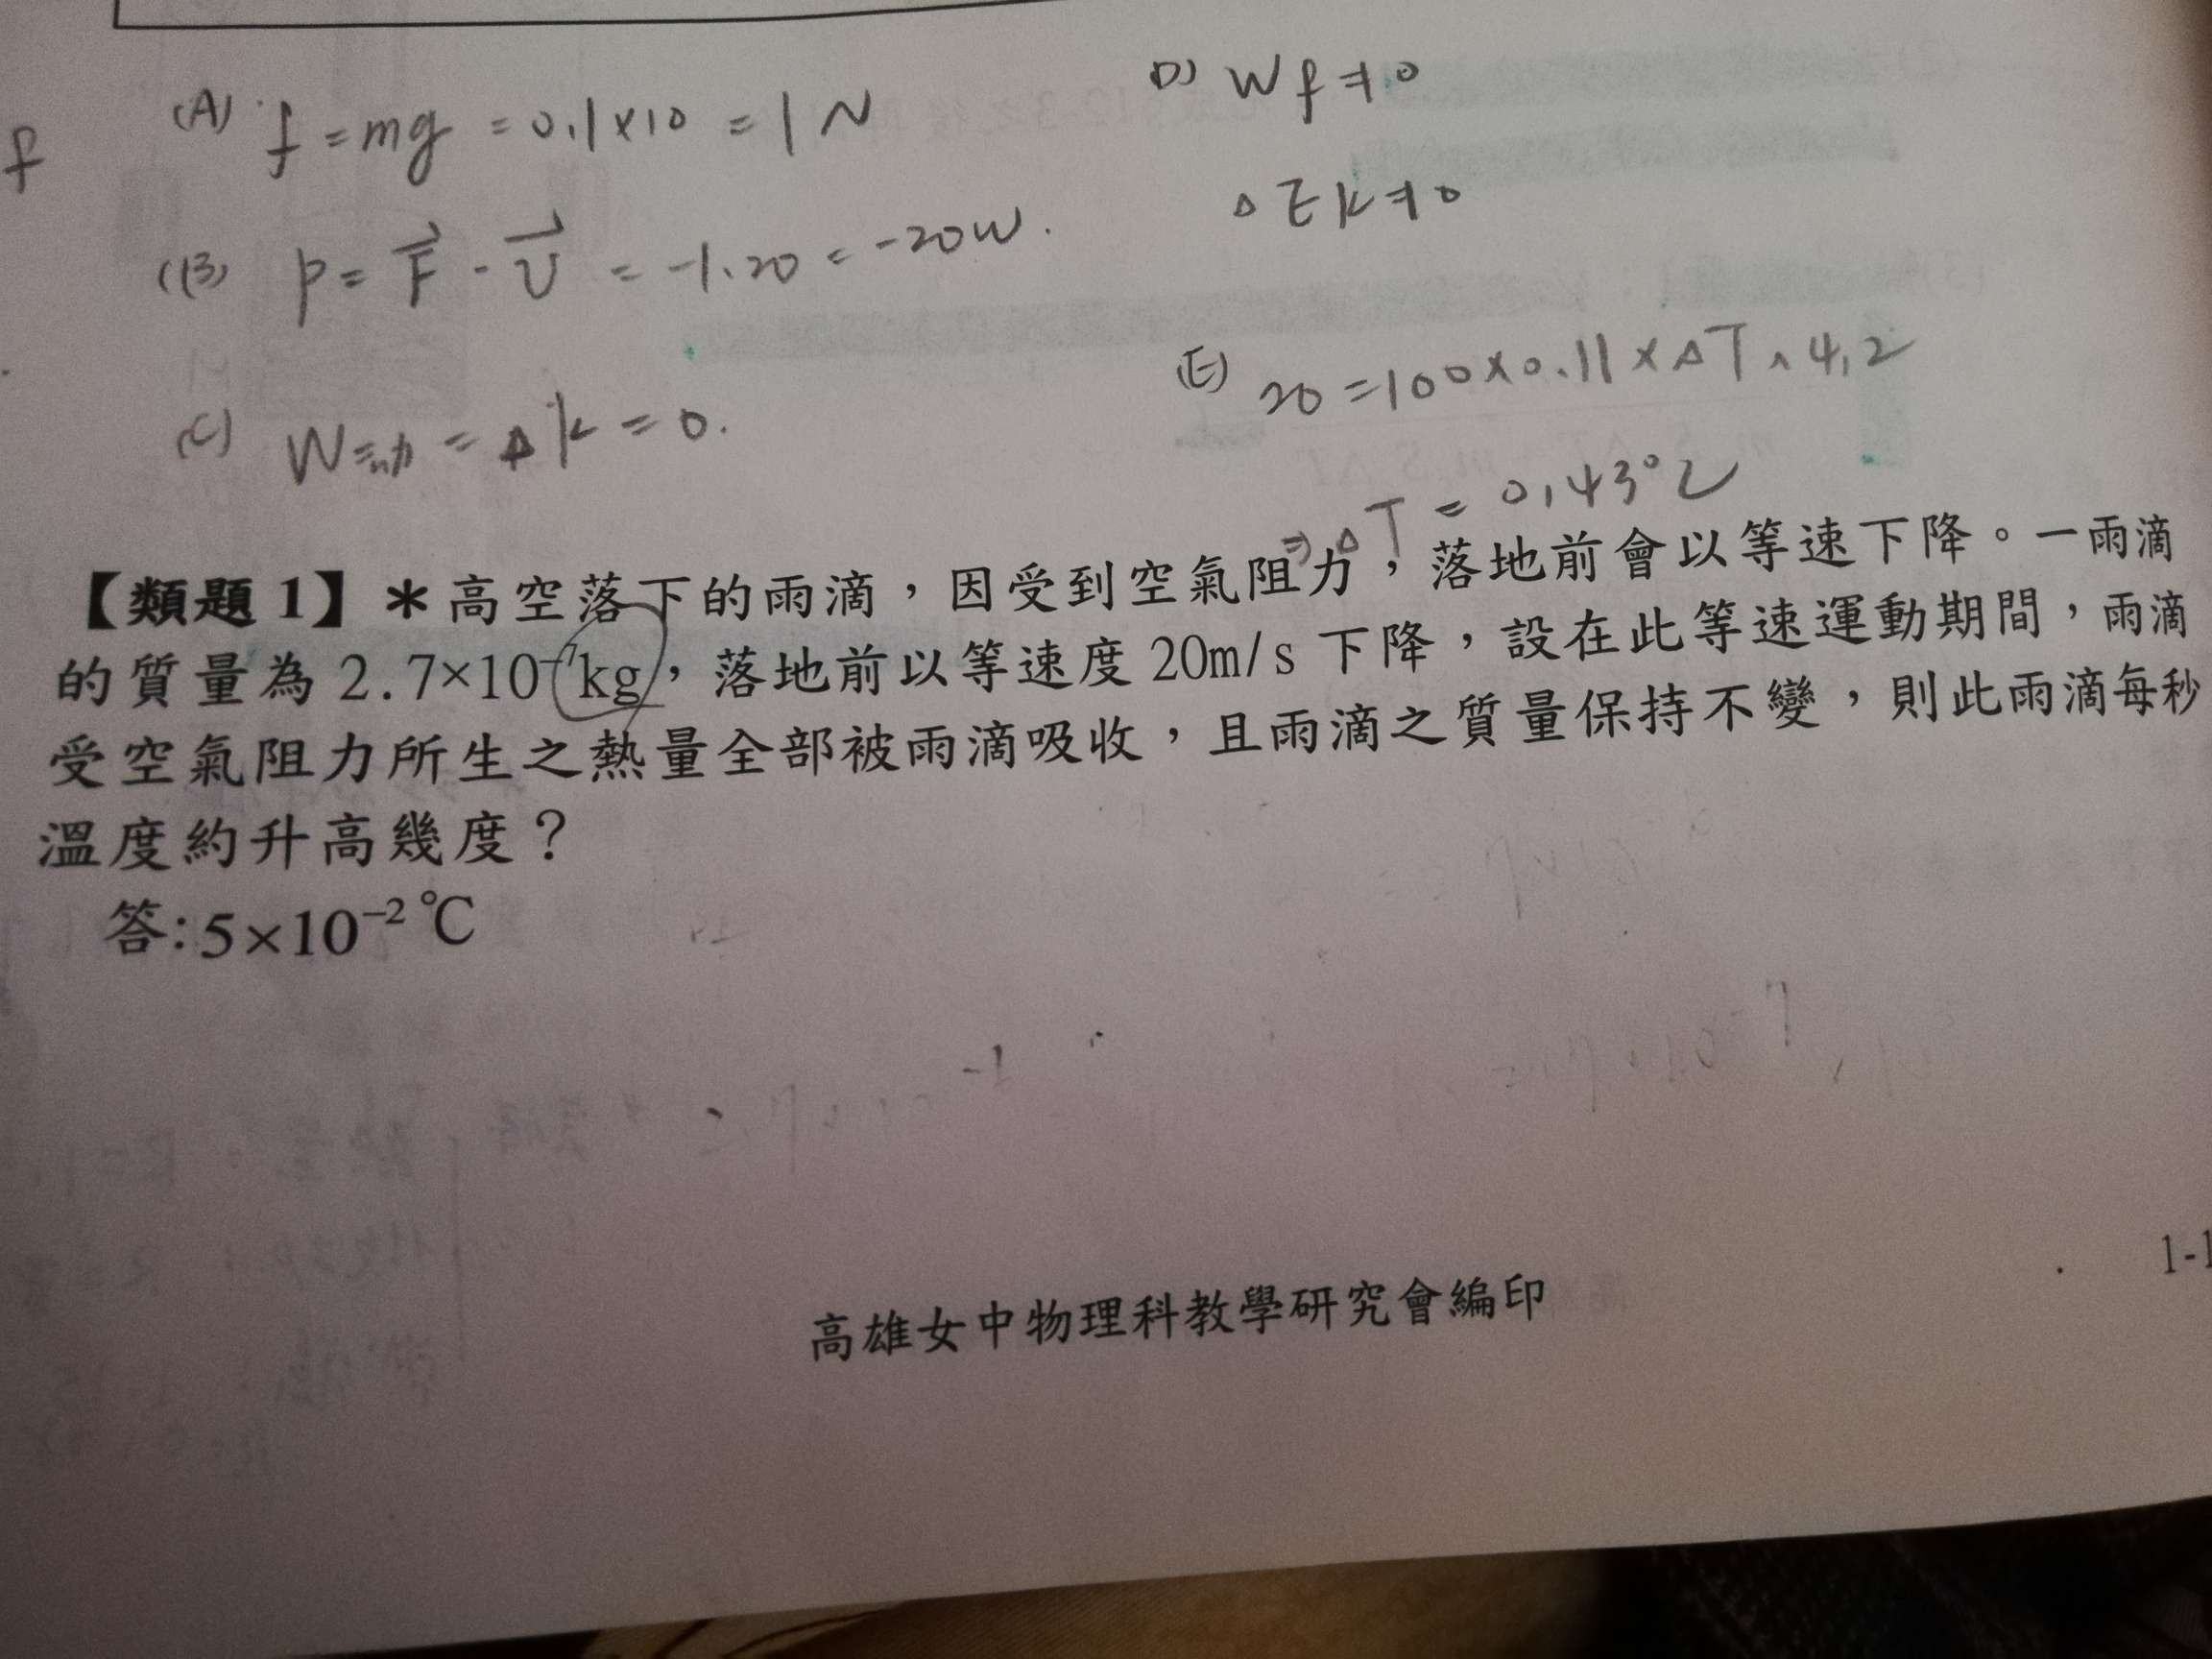 (A) f = mg = 0.1×10 = 1 N
D) Wf ≠ 0
f
△Ek ≠ 0
(B) P = F⃗ · V⃗ = -1.20 = -20W.
(E) 20 = 100×0.11×△T×4.2
(C) W = △k = 0.
⇒ △T = 0.43°C
【類題1】＊高空落下的雨滴，因受到空氣阻力，落地前會以等速下降。一雨滴
的質量為 2.7×10⁻⁷kg，落地前以等速度 20m/s 下降，設在此等速運動期間，雨滴
受空氣阻力所生之熱量全部被雨滴吸收，且雨滴之質量保持不變，則此雨滴每秒
溫度約升高幾度？
答:5×10⁻²℃
1-1
高雄女中物理科教學研究會編印